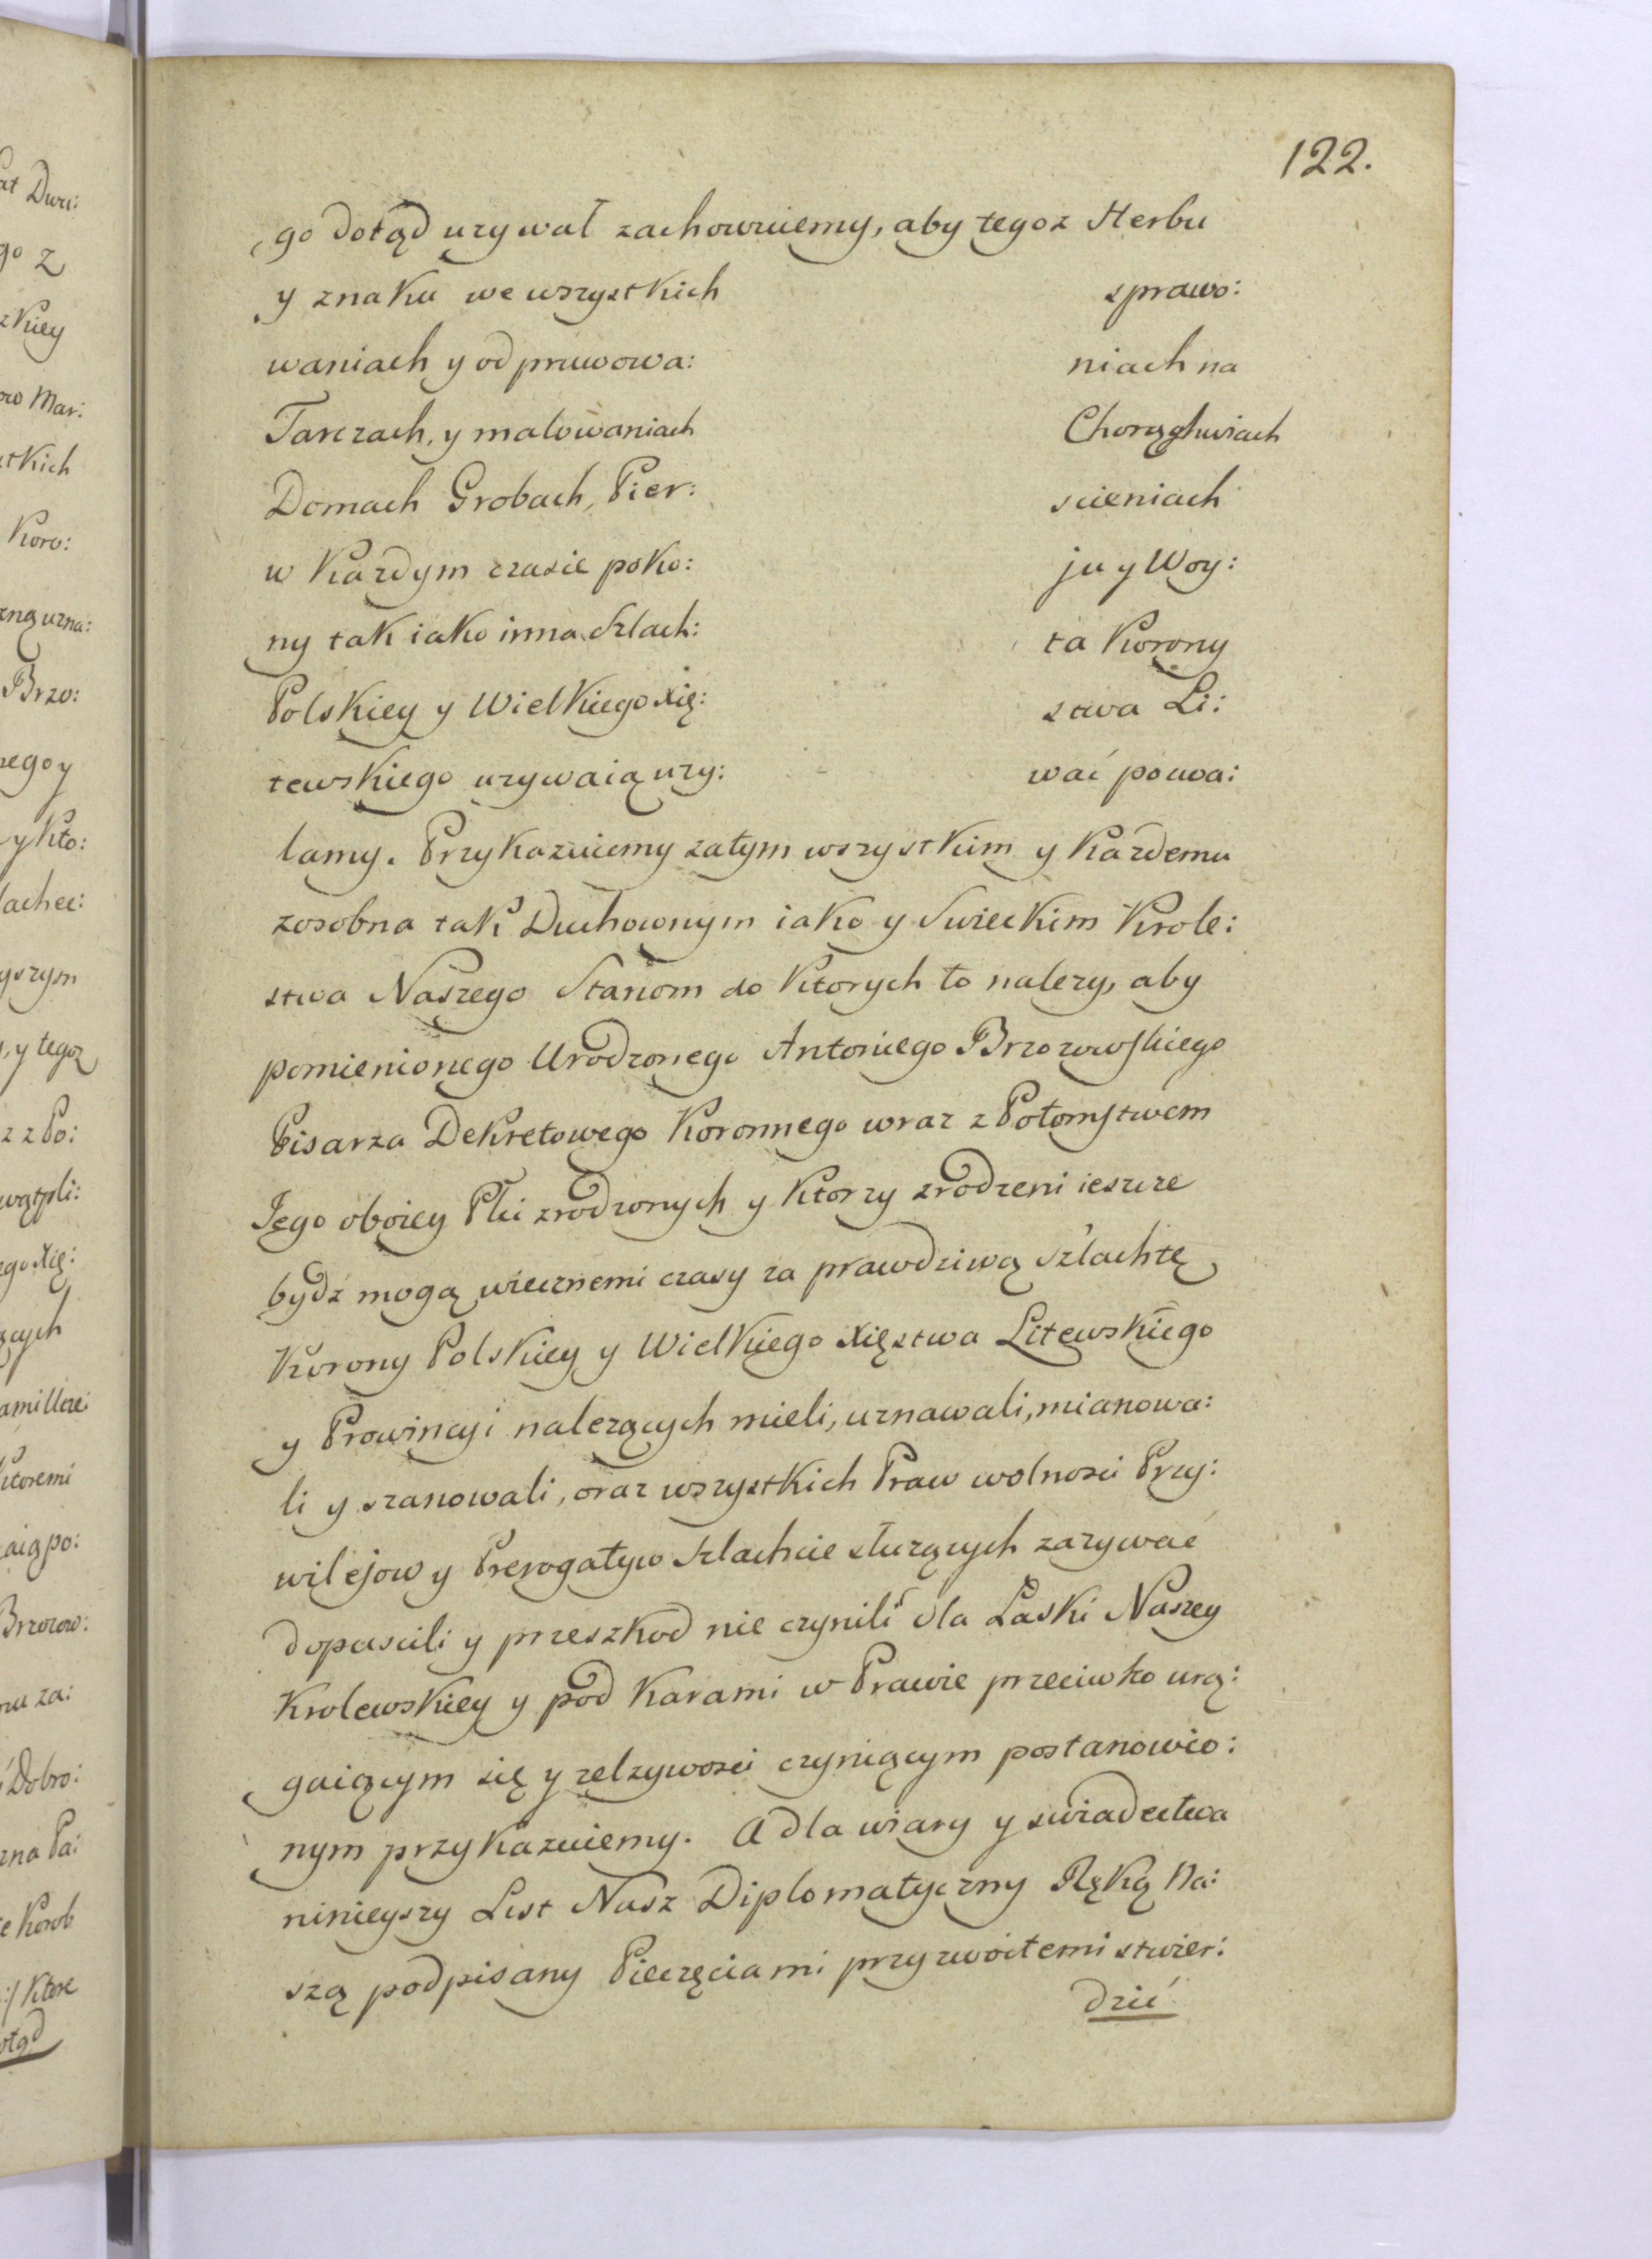 122.
go dotąd uzywał zachowuiemy, aby tegoz Herbu
y znaku we wszystkich sprawo:
waniach y odprawowa: niach na
Tarczach, y malowaniach Chorągwiach
Domach Grobach, Pier: scieniach
w Kazdym czasie poko: ju y Woy:
ny tak iako inna Szlach: ta Korony
Polskiey y Wielkiego Xię: stwa Li:
tewskiego uzywaią uzy: wać pozwa:
lamy. Przykazuiemy zatym wszystkim y Kazdemu
zosobna tak Duchownym iako y Swieckim Krole:
stwa Naszego Stanom do Ktorych to nalezy, aby
pomienionego Urodzonego Antoniego Brzozowskiego
Pisarza Dekretowego Koronnego wraz z Potomstwem
Jego oboiey Płci zrodzonych y Ktorzy zrodzeni ieszcze
bydz mogą wiecznemi czasy za prawdziwą Szlachtę
Korony Polskiey y Wielkiego Xięstwa Litewskiego
y Prowincyi nalezących mieli, uznawali, mianowa:
li y szanowali, oraz wszystkich Praw wolnosci Przy:
wilejow y Prerogatyw Szlachcie słuzących zazywać
dopuscili y przeszkod nie czynili dla Łaski Naszey
Krolewskiey y pod Karami w Prawie przeciwko urą:
gaiącym się y zelzywosci czyniącym postanowio:
nym przykazuiemy. A dla wiary y swiadectwa
ninieyszy List Nasz Diplomatyczny Ręką Na:
szą podpisany Pieczęciami przyzwoitemi stwier:
dzić